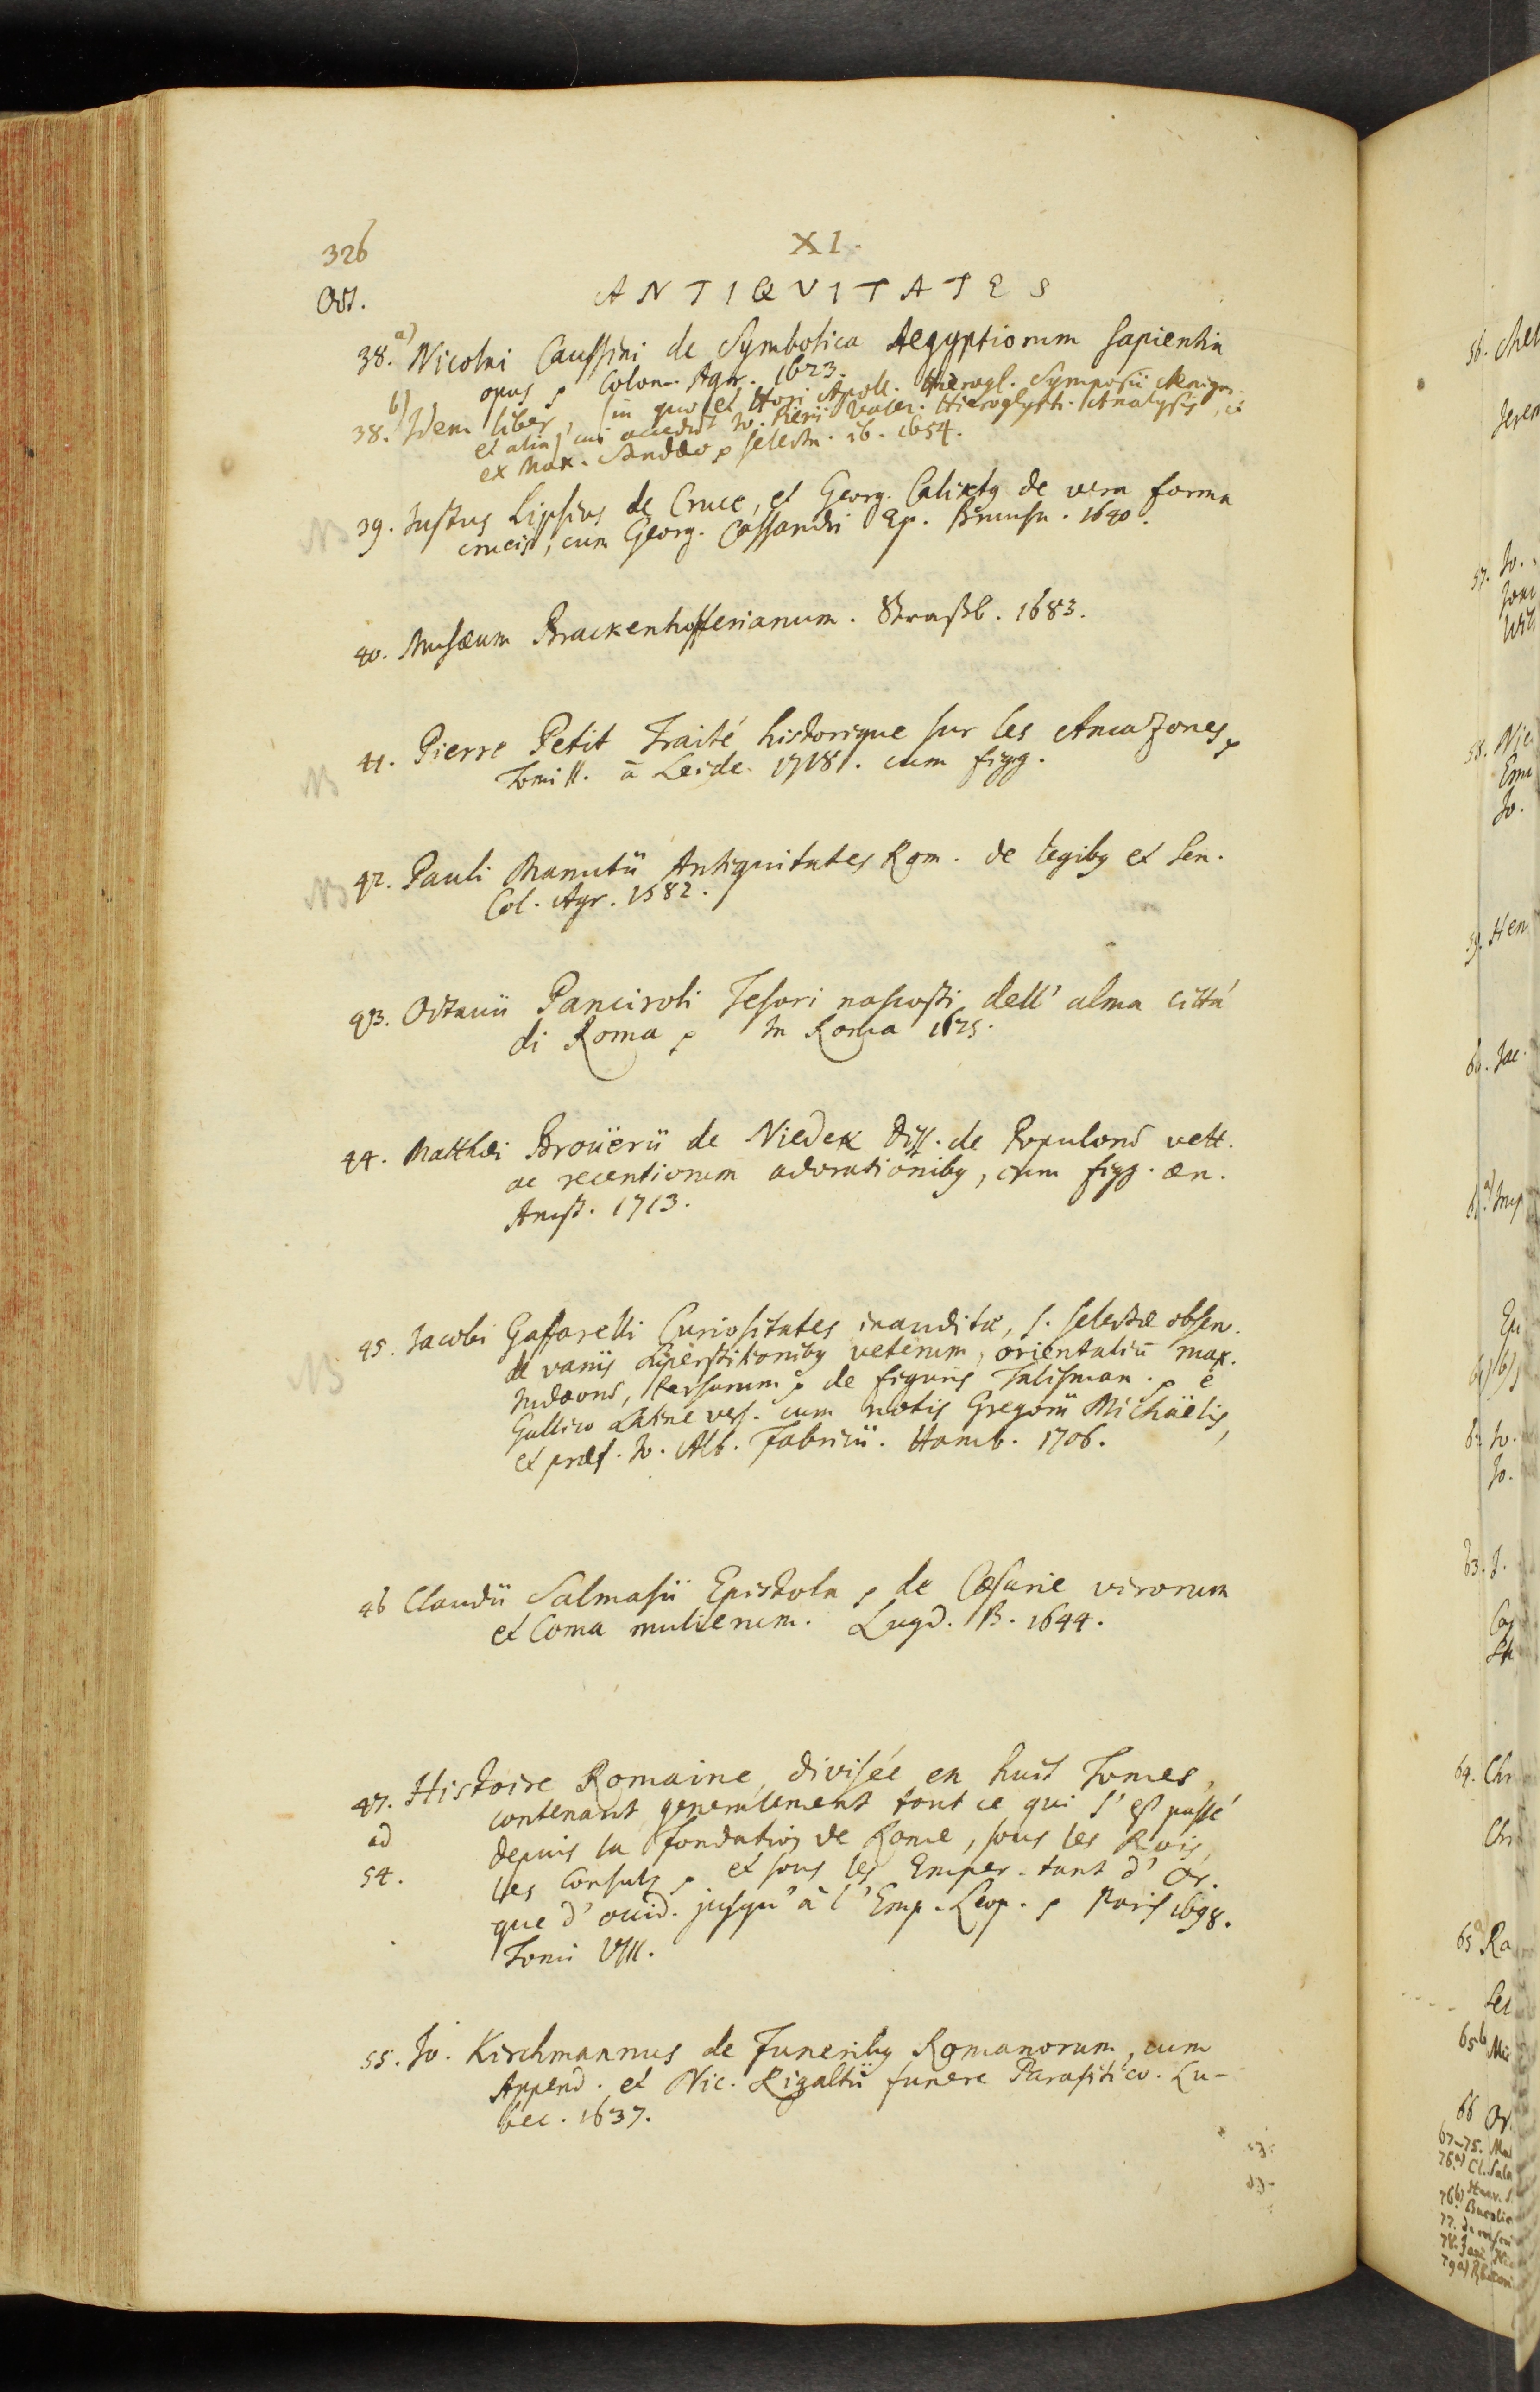 326
XI.
Oct.
ANTIQVITATES
38. a) Nicolai Caussini de Symbolica Aegyptiorum sapientia
opus p Colon. Agr. 1623.
38. b) Idem liber, in quo et Hori Apoll. Hierogl. Symposii Aenigm.
et alia, cui accedit Jo. Pierii Valer. Hieroglyph. Analysis, et
ex Max. Sandæo p selecta. ib. 1654.
NB 39. Justus Lipsius de Cruce, et Georg. Calixtq de vera forma
crucis, cum Georg. Cassandri Ep. Brunsu. 1640.
40. Musæum Brackenhofferianum. Straßb. 1683.
41. Pierre Petit Traité historique sur les Amazones p
NB Tomi II. à Leide. 1718. cum figg.
NB 42. Pauli Manutii Antiquitates Rom. de legibq et Sen.
Col. Agr. 1582.
43. Octauii Panciroli Tesori nascosti dell' alma città
di Roma p In Roma 1625.
44. Matthæi Broüerii de Niedek Diss. de Populorum vett.
ac recentiorum adorationibq, cum figg. æn.
Amst. 1713.
45. Jacobi Gaffarelli Curiositates inauditæ, s. selectæ obseru.
NB de variis superstitionibq veterum, orientaliū max.
Judæorum, Persarum p de figuris Talisman. p è
Gallico Latine vers. cum notis Gregorii Michäelis,
et præf. Jo. Alb. Fabricii. Hamb. 1706.
46 Claudii Salmasii Epistola p de Cæsarie virorum
et Coma mulierum. Lugd. B. 1644.
47. Histoire Romaine, divisée en huit Tomes,
contenant generalement tout ce qui s'est passé
ad depuis la Fondation de Rome, sous les Rois,
54. les Consuls p et sous les Emper. tant d' Or.
que d' occid. jusqu' à l' Emp. Leop. p Paris 1698.
Tomi VIII.
55. Jo. Kirchmannus de Funeribq Romanorum, cum
Append. et Nic. Rigaltii funere Parasitico. Lu-
bec. 1637.
56.
57. Jo.
58. Nic
Jo.
59. Hen
60. Jac.
Jo.
63. J.
64. Chr
65 a Ra
65 b
66
67-75.
76. a) Cl. Salm
76 b)
77.
78.
79 a)